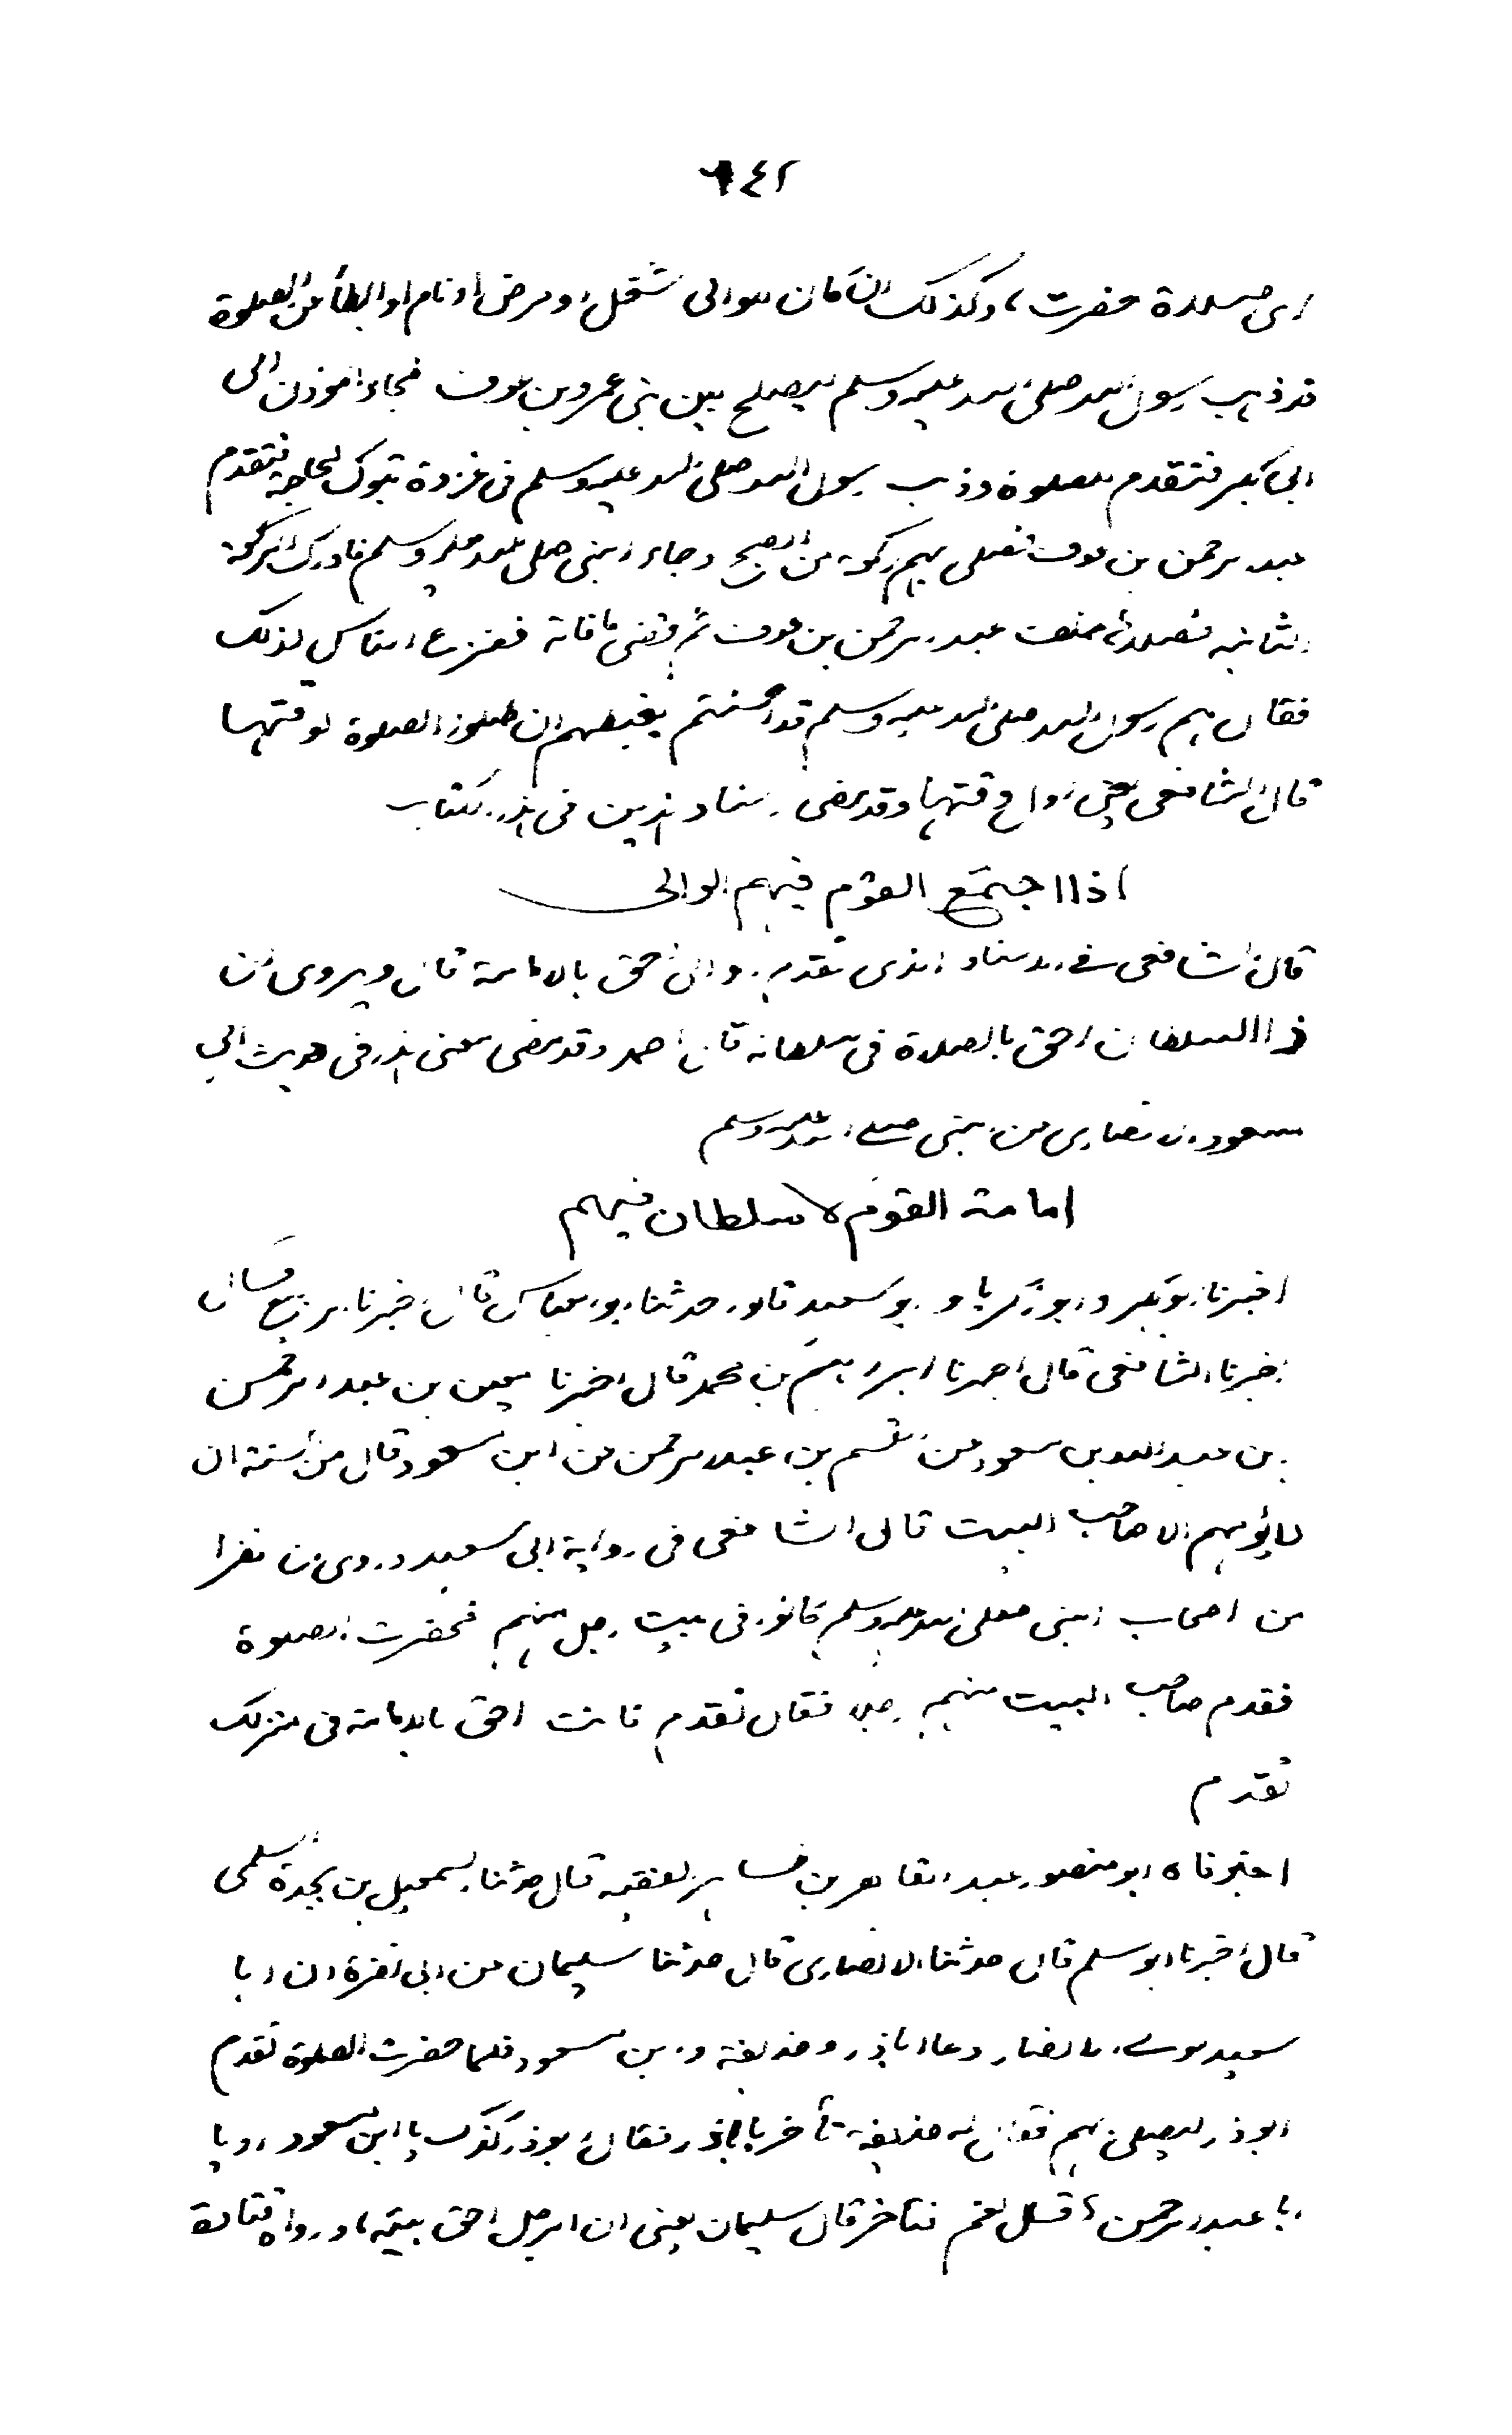 ٦٤٢
اى صلاة حضرت، وكذلك ان كان للوالى شغل او مرض او نام او ابطأ عن الصلوة
قد ذهب رسول الله صلى الله عليه وسلم ليصلح بين بنى عمرو بن عوف فجاء المؤذن الى
ابى بكر فتقدم للصلوة وذهب رسول الله صلى الله عليه وسلم فى غزوة تبوك لحاجة فتقدم
عبد الرحمن بن عوف فصلى بهم ركعة من الصبح وجاء النبى صلى الله عليه وسلم فادرك الركعة
الثانيه فصلاها خلف عبد الرحمن بن عوف ثم قضى ما فاته ففزع الناس لذلك
فقال لهم رسول الله صلى الله عليه وسلم قد احسنتم يغبطهم ان صلوا الصلوة لوقتها
قال الشافعى يعنى اول وقتها وقد مضى اسناد هذين فى هذا الكتاب
اذا اجتمع القوم فيهم الوالى
قال الشافعى فى الاسناد الذى تقدم الوالى احق بالامامة قال ويروى ان
ذا السلطان احق بالصلاة فى سلطانه قال احمد وقد مضى معنى هذا فى حديث ابى
مسعود الانصارى عن النبى صلى الله عليه وسلم
امامة القوم لا سلطان فيهم
اخبرنا ابو بكر وابو زكريا وابو سعيد قالوا حدثنا ابو العباس قال اخبرنا الربيع قال
اخبرنا الشافعى قال اخبرنا ابراهيم بن محمد قال اخبرنا معن بن عبد الرحمن
بن عبد الله بن مسعود عن القسم بن عبد الرحمن عن ابن مسعود قال من السنة ان
لا يؤمهم الا صاحب البيت قال الشافعى فى رواية ابى سعيد وروى ان نفرا
من اصحاب النبى صلى الله عليه وسلم كانوا فى بيت رجل منهم فحضرت الصلوة
فقدم صاحب البيت منهم رجلا فقال تقدم فانت احق بالامامة فى منزلك
تقدم
اخبرناه ابو منصور عبد القاهر بن طاهر الفقيه قال حدثنا اسمعيل بن نجيد السلمى
قال اخبرنا ابو مسلم قال حدثنا الانصارى قال حدثنا سليمان عن ابى نضرة ان ابا
سعيد مولى الانصار دعا اباذر وحذيفة وابن مسعود فلما حضرت الصلوة تقدم
ابوذر ليصلى بهم فقال له حذيفة تأخر يا اباذر فقال ابوذر كذلك يا ابن مسعود او يا
ابا عبد الرحمن قال نعم فتأخر قال سليمان يعنى ان الرجل احق ببيته، ورواه قتادة